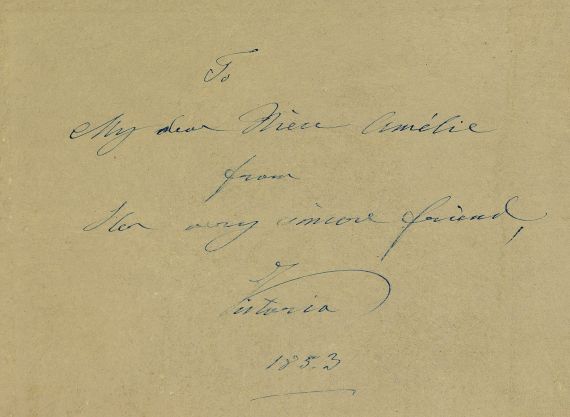 To
My dear Amélie
from
Her very sincere friend,
Victoria
1853